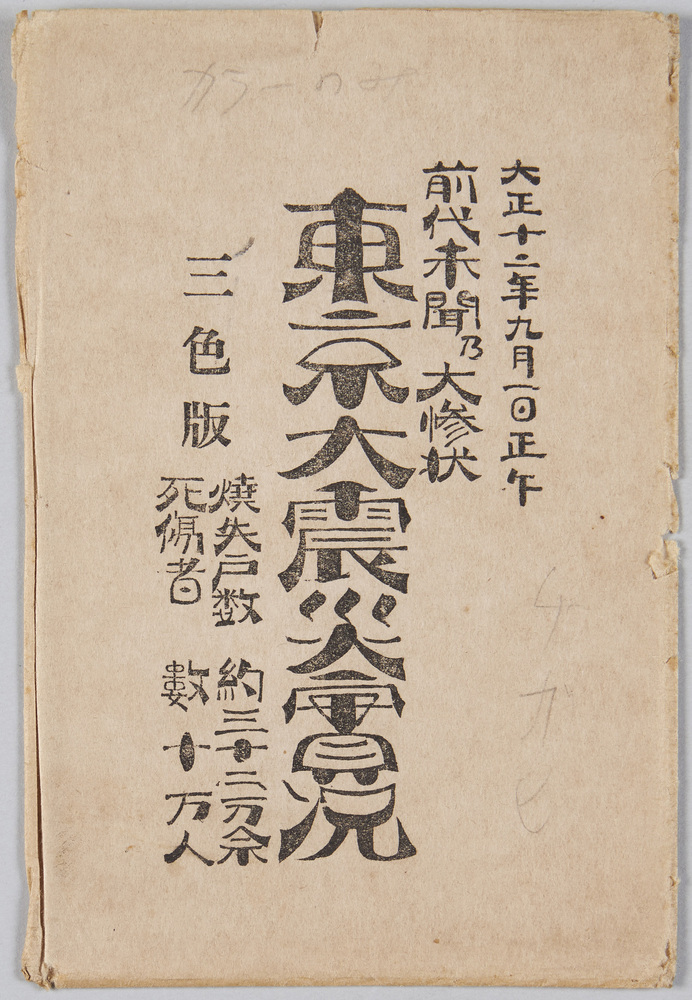 大正十二年九月一日正午
前代未聞乃大惨状
東京大震災實况
三色版
燒失戸数 約三十二万余
死傷者 數十万人
カラーのみ